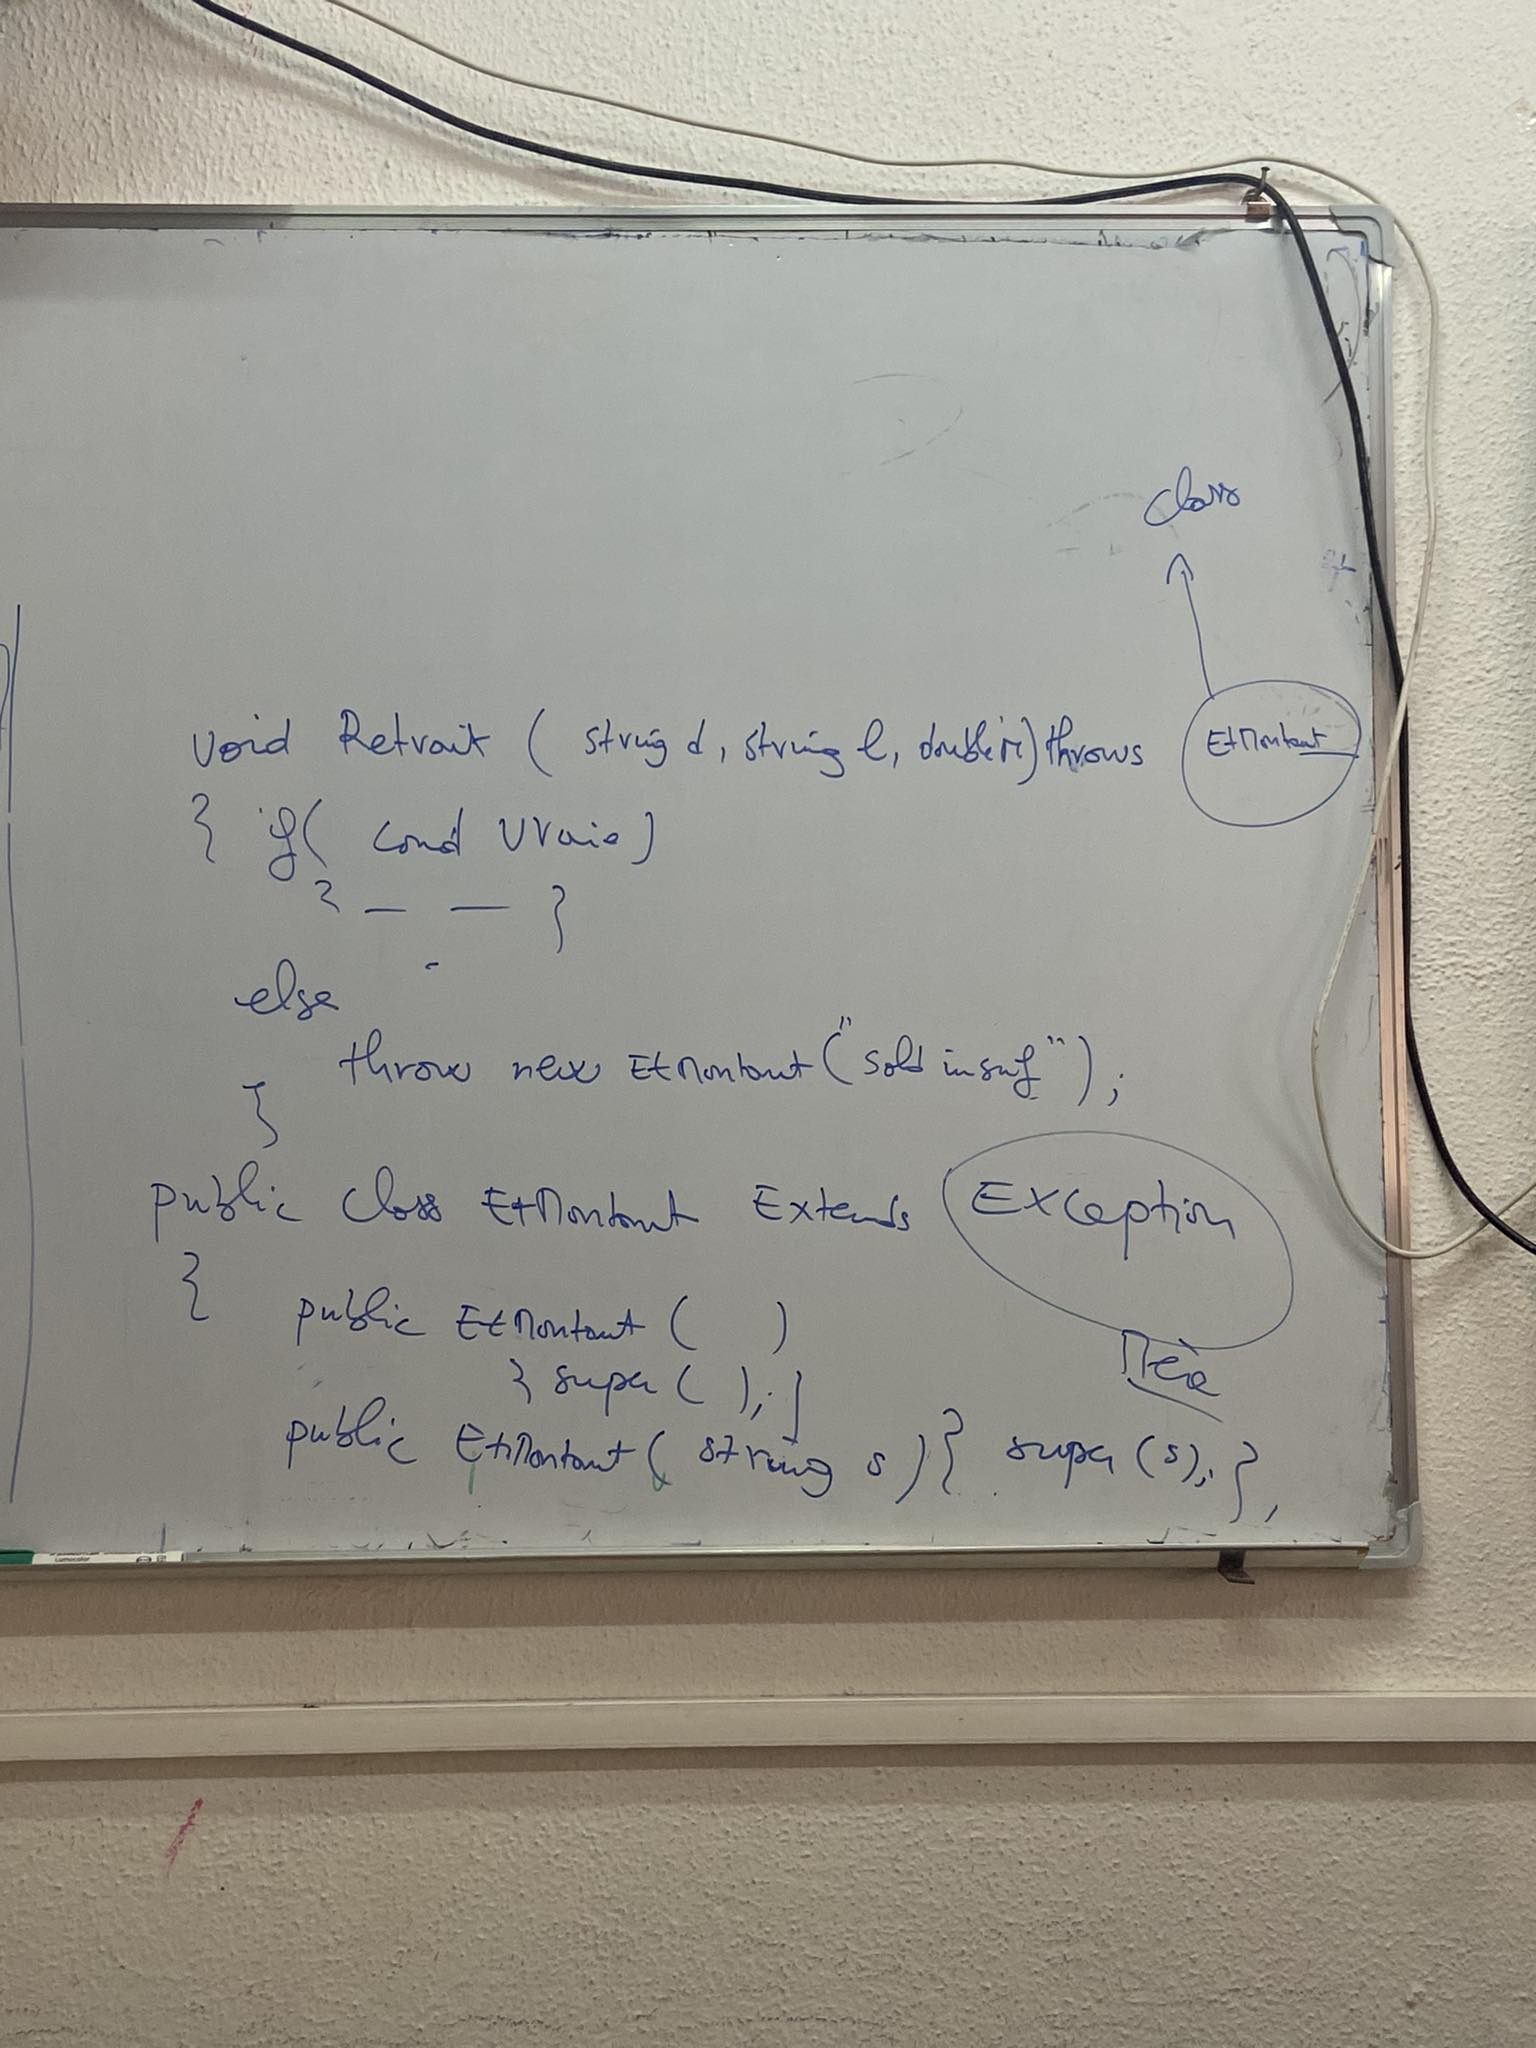 class
void Retrait ( string d, string l, double m) throws EtMontant
{ if( cond vraie)
{ _ _ }
else
throw new EtMontant("sold insuf");
}
public class EtMontant Extends Exception
{
public EtMontant ( )
{ super ( ); }
Mère
public EtMontant( string s) { super (s); }
Lumocolor